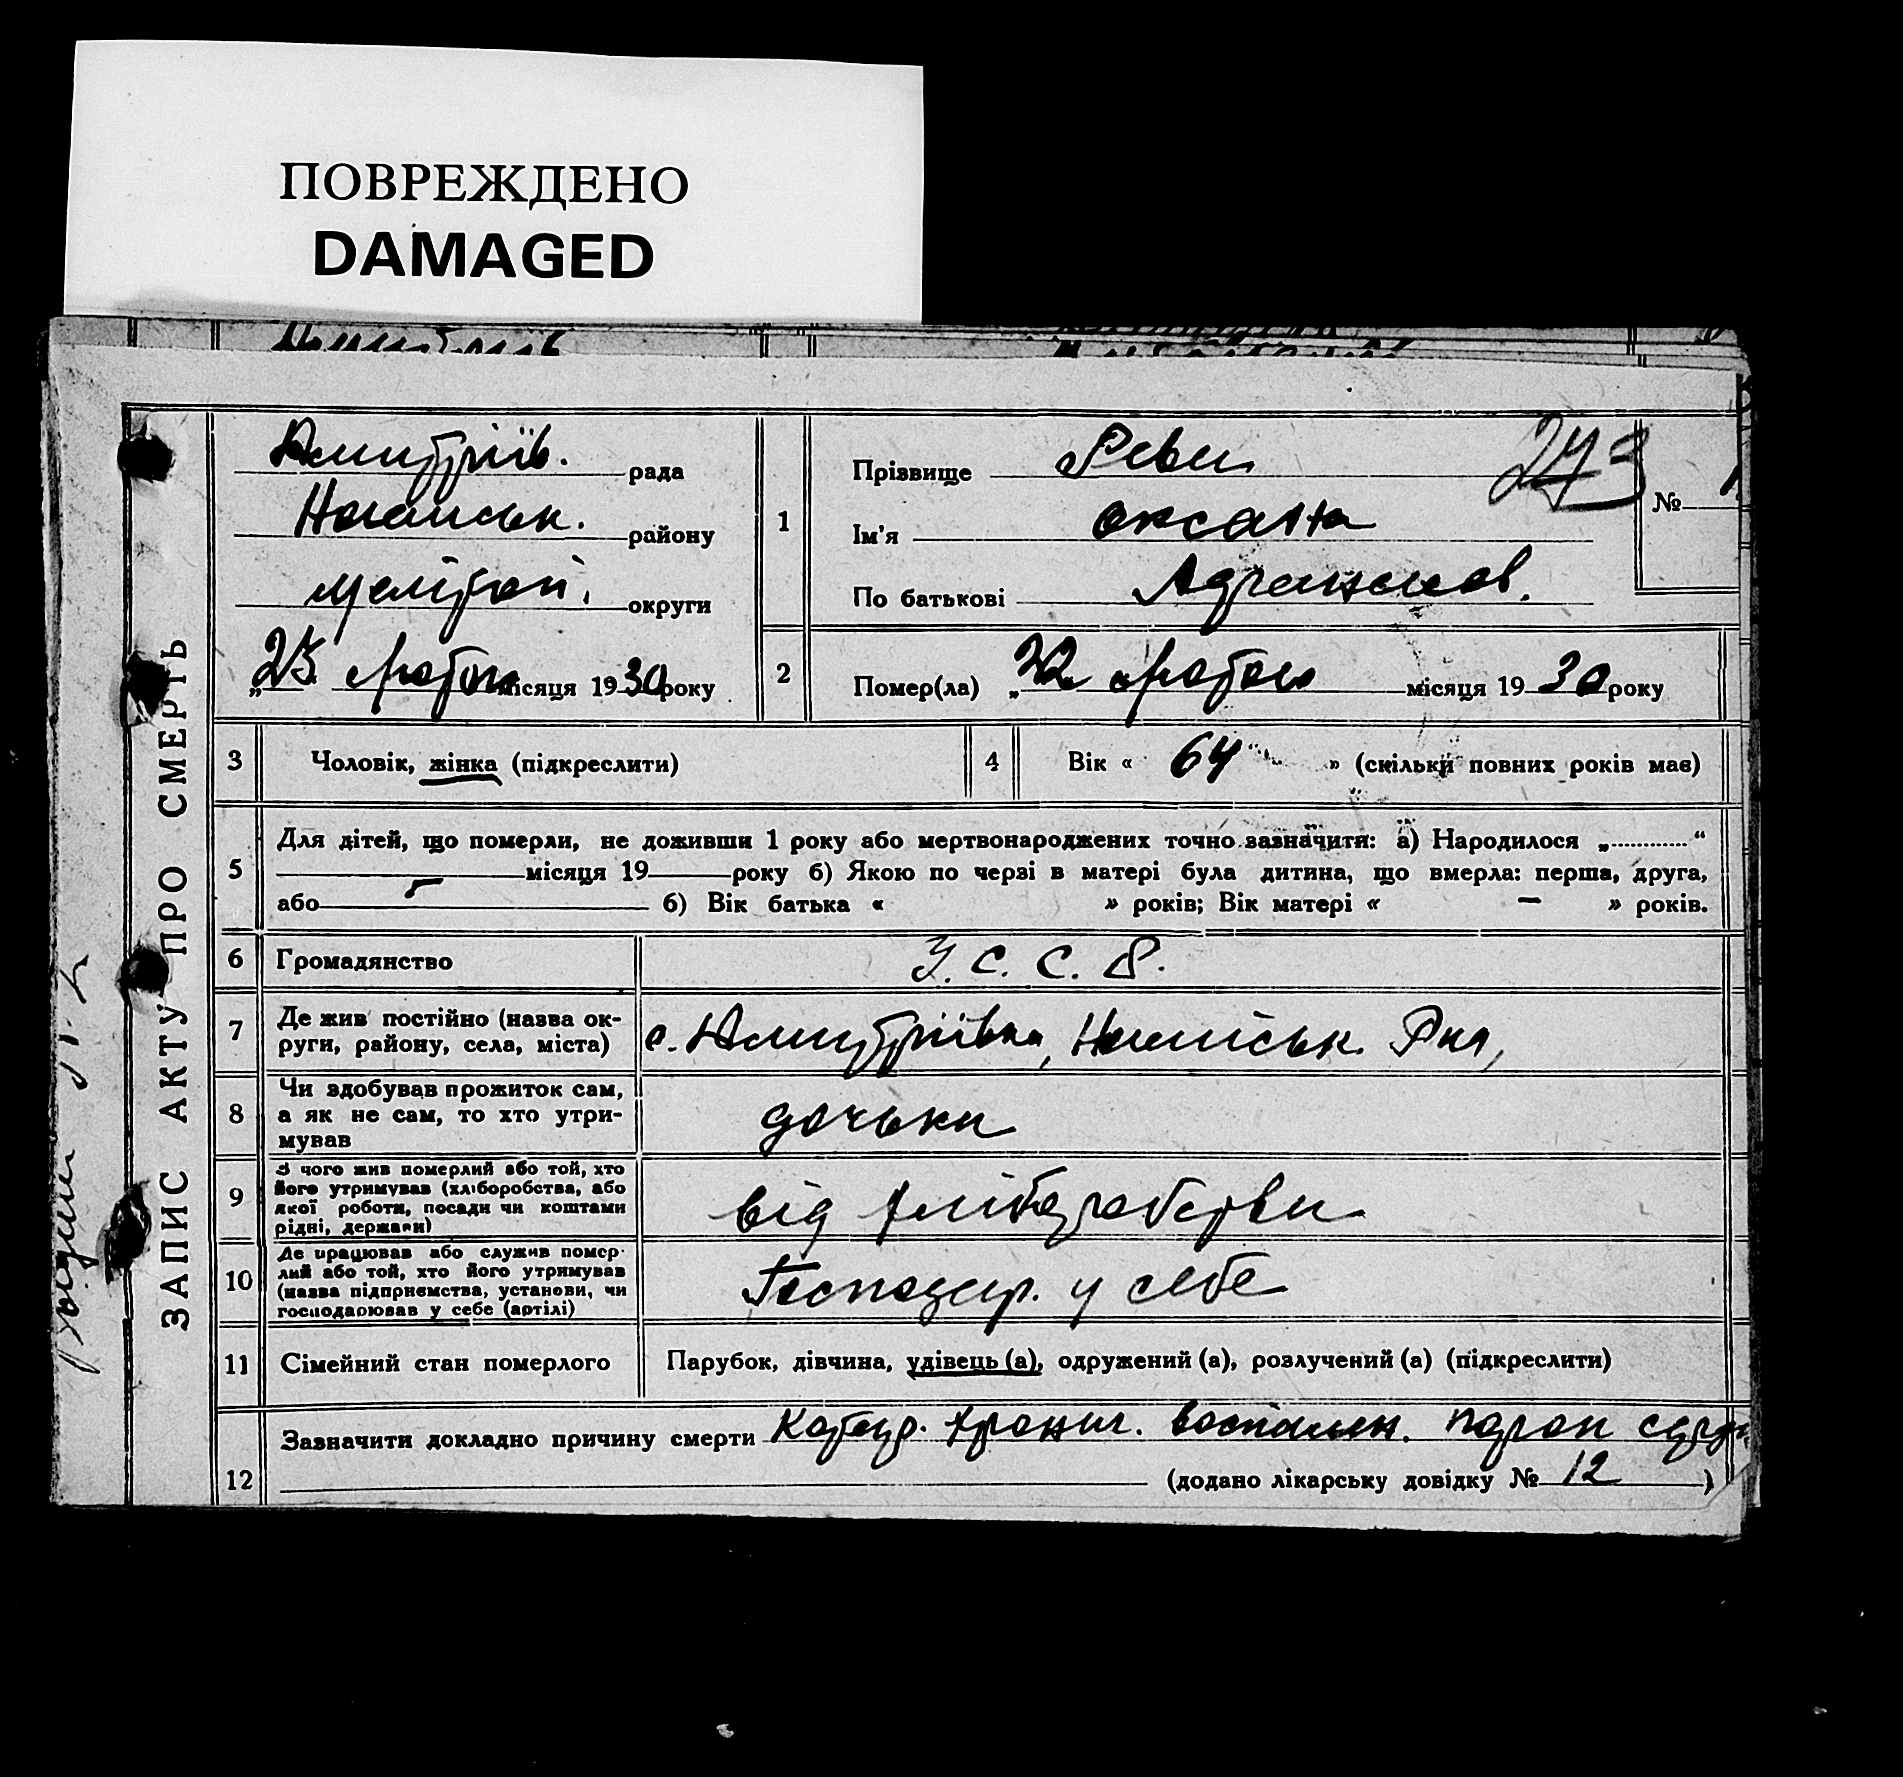 ПОВРЕЖДЕНО
DAMAGED
ЗАПИС АКТУ ПРО СМЕРТЬ
Дмитріїв. рада
Ногайськ. району
Мелітоп. округи
„25 лютого місяця 1930 року
1
Прізвище Реви 273
№
Ім'я Оксана
По батькові
2
Помер(ла) „22 лютого місяця 1930 року
3 Чоловік, жінка (підкреслити)
4 Вік « 64 » (скільки повних років має)
5
Для дітей, що померли, не доживши 1 року або мертвонароджених точно зазначити: а) Народилося „............“
місяця 19 року б) Якою по черзі в матері була дитина, що вмерла: перша, друга,
або б) Вік батька « » років; Вік матері « — » років.
6 Громадянство У. С. С. Р.
7 Де жив постійно (назва ок-
руги, району, села, міста) с. Дмитріївка, Ногайськ. Р-ну,
8 Чи здобував прожиток сам,
а як не сам, то хто утри-
мував дочька
9 З чого жив померлий або той, хто
його утримував (хліборобства, або
якої роботи, посади чи коштами
рідні, держави) від хліборобства
10 Де працював або служив помер-
лий або той, хто його утримував
(назва підприємства, установи, чи
господарював у себе (артілі) Господар. у себе
11 Сімейний стан померлого Парубок, дівчина, удівець (а), одружений (а), розлучений (а) (підкреслити)
12 Зазначити докладно причину смерти хронич. воспален.
(додано лікарську довідку № 12 )